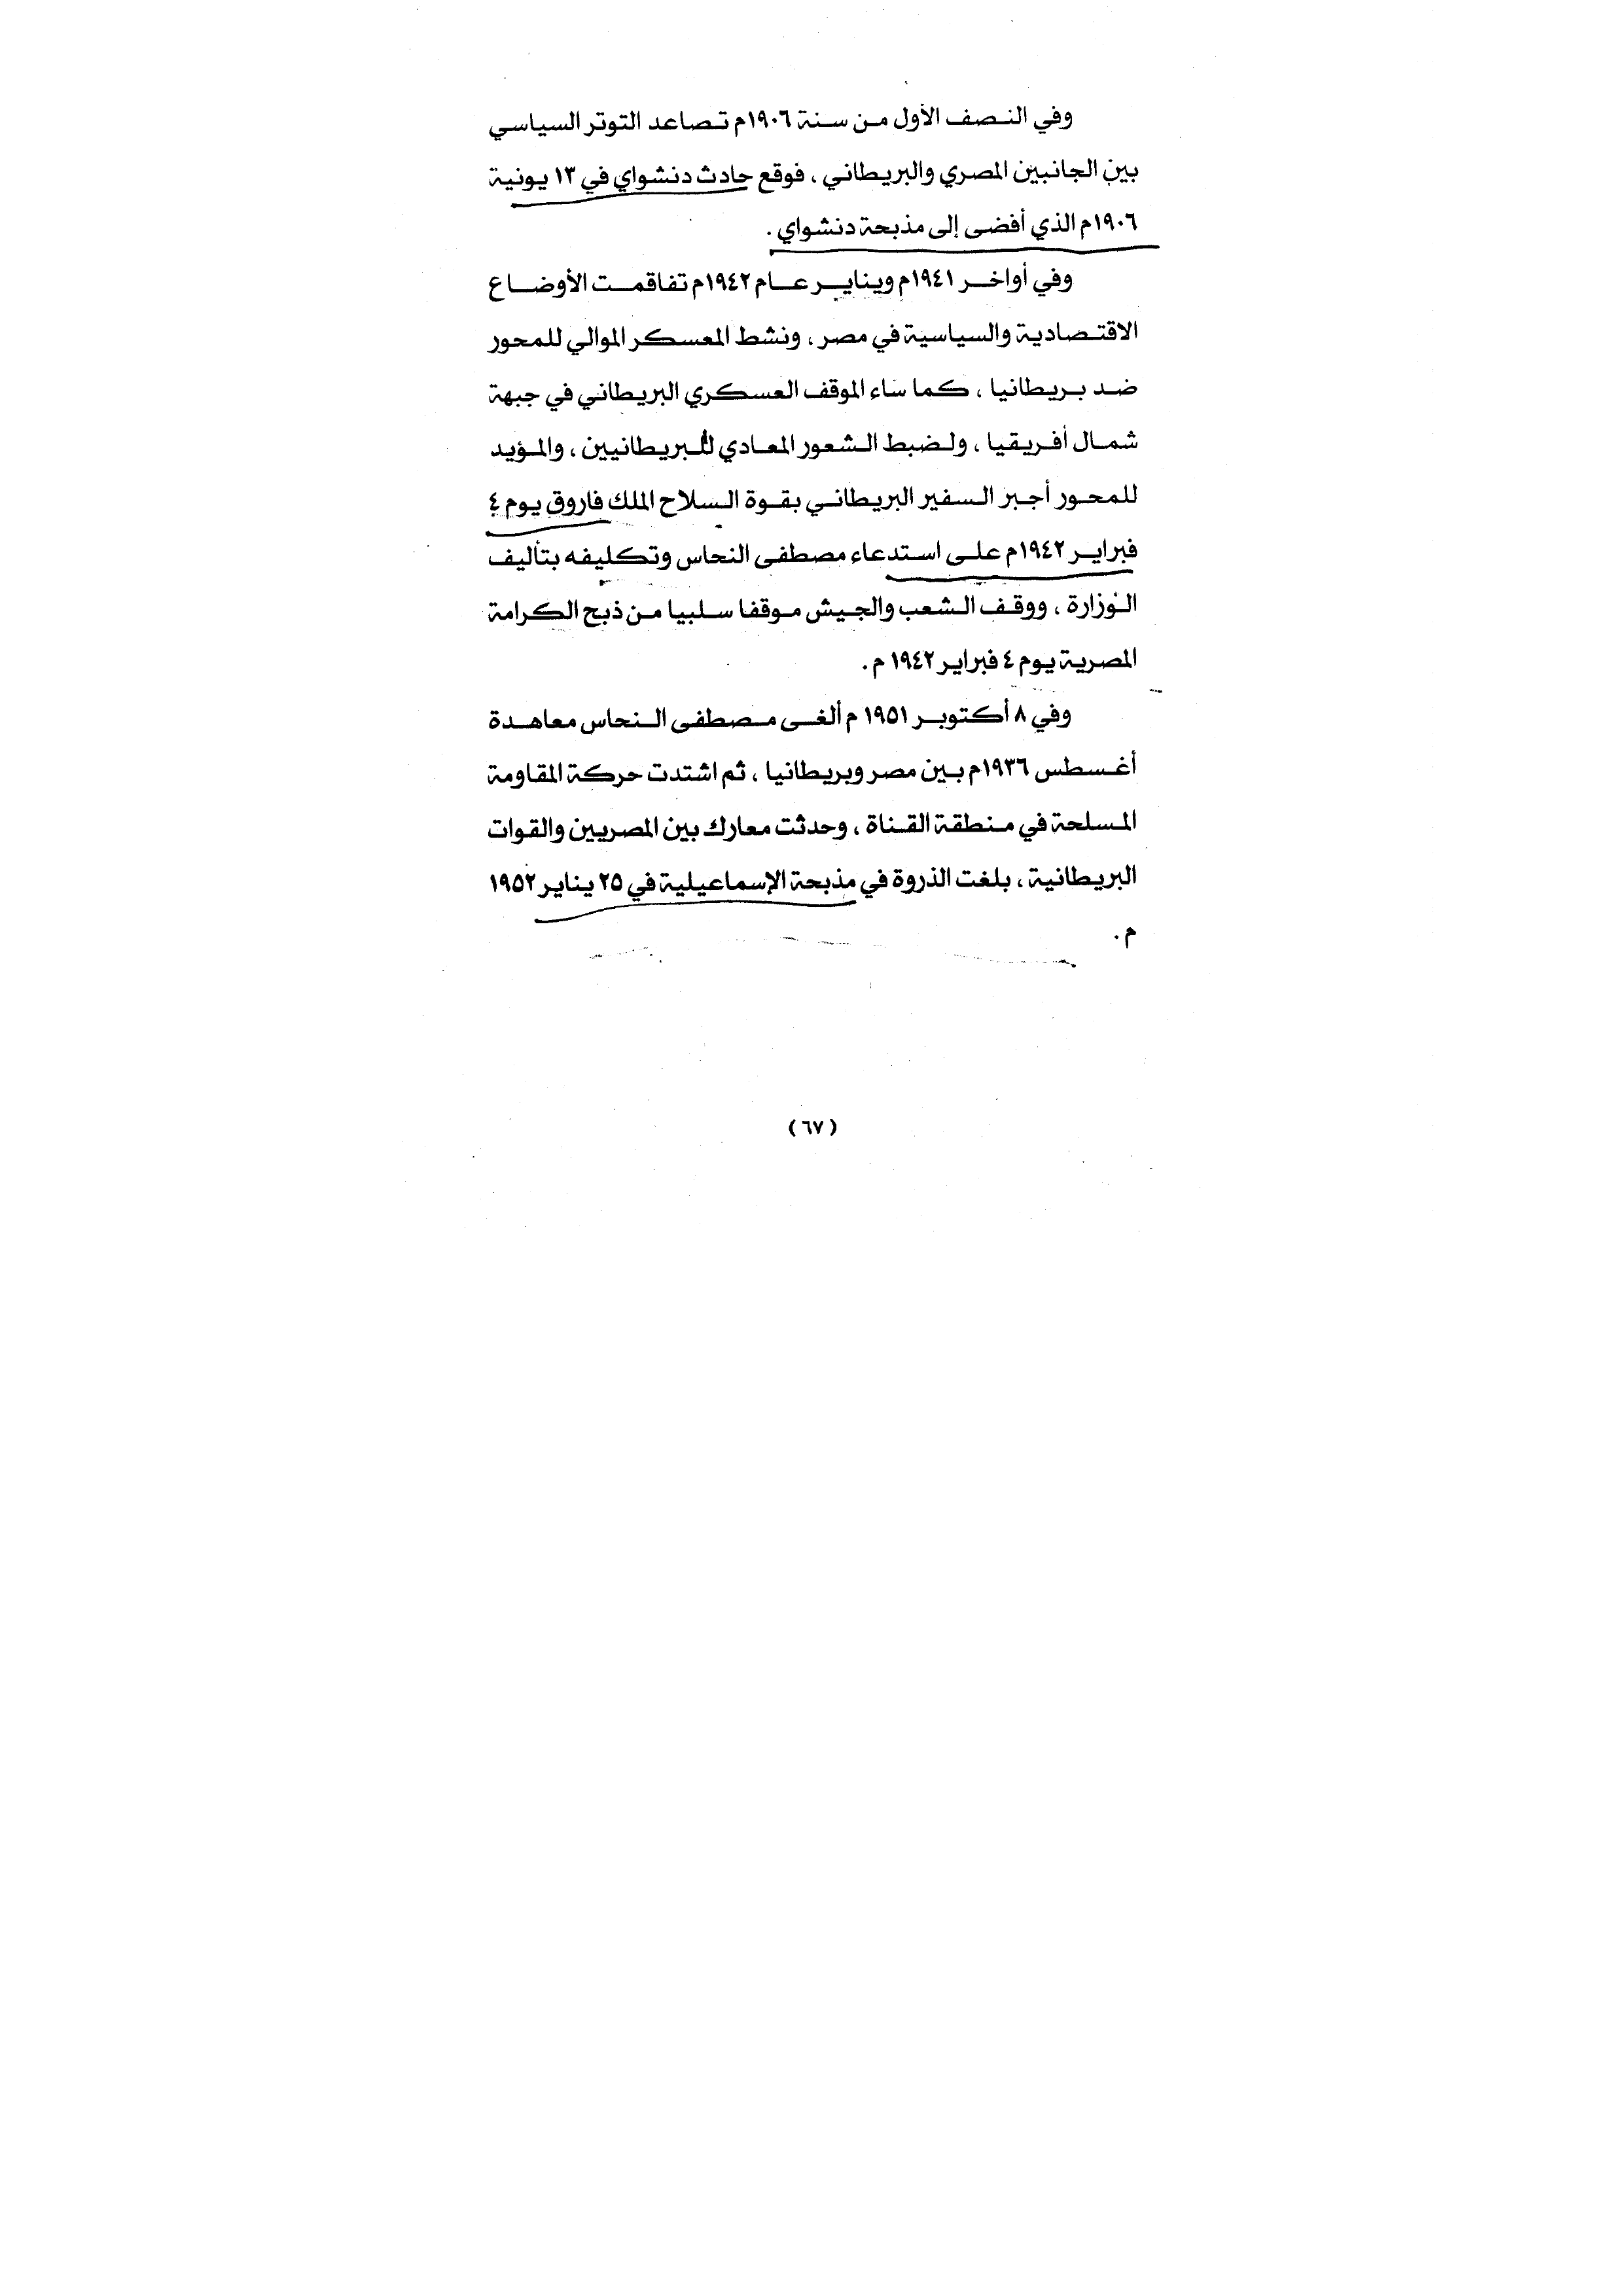 وفي النصف الأول من سنة ١٩٠٦م تصاعد التوتر السياسي
بين الجانبين المصري والبريطاني ، فوقع حادث دنشواي في ١٣ يونية
١٩٠٦م الذي أفضى إلى مذبحة دنشواي .
وفي أواخر ١٩٤١م ويناير عام ١٩٤٢م تفاقمت الأوضاع
الاقتصادية والسياسية في مصر ، ونشط المعسكر الموالي للمحور
ضد بريطانيا ، كما ساء الموقف العسكري البريطاني في جبهة
شمال أفريقيا ، ولضبط الشعور المعادي للبريطانيين ، والمؤيد
للمحور أجبر السفير البريطاني بقوة السلاح الملك فاروق يوم ٤
فبراير ١٩٤٢م على استدعاء مصطفى النحاس وتكليفه بتأليف
الوزارة ، ووقف الشعب والجيش موقفا سلبيا من ذبح الكرامة
المصرية يوم ٤ فبراير ١٩٤٢ م .
وفي ٨ أكتوبر ١٩٥١ م ألغى مصطفى النحاس معاهدة
أغسطس ١٩٣٦م بين مصر وبريطانيا ، ثم اشتدت حركة المقاومة
المسلحة في منطقة القناة ، وحدثت معارك بين المصريين والقوات
البريطانية ، بلغت الذروة في مذبحة الإسماعيلية في ٢٥ يناير ١٩٥٢
م .
( ٦٧ )